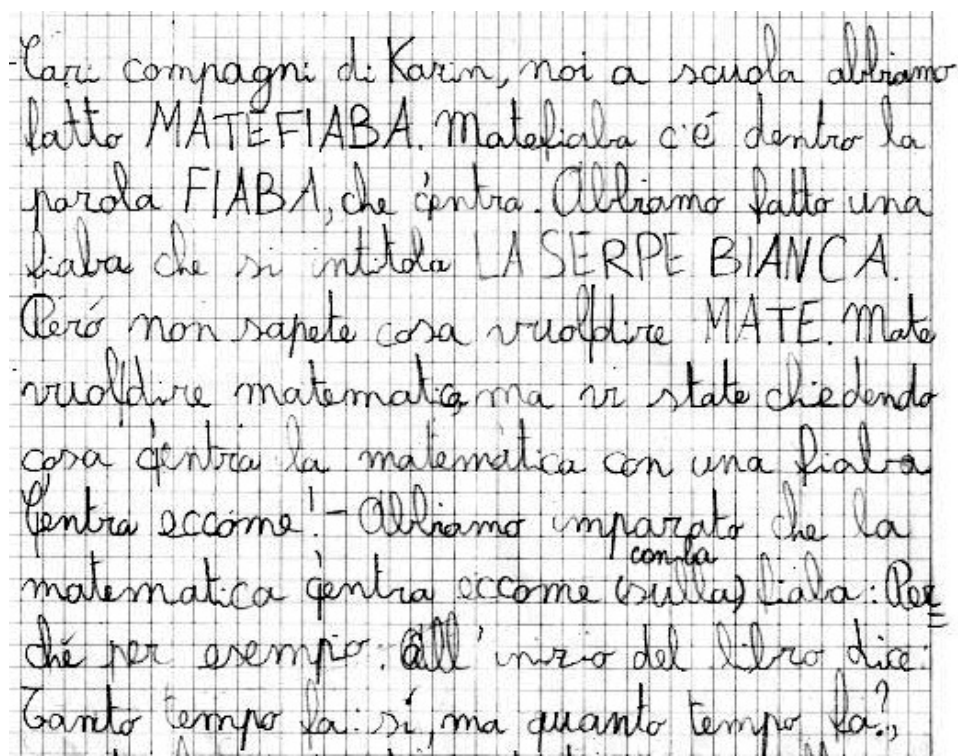 Cari compagni di Karin, noi a scuola abbiamo
fatto MATEFIABA. Matefiaba c'é dentro la
parola FIABA, che c'entra. Abbiamo fatto una
fiaba che si intitola LA SERPE BIANCA.
Peró non sapete cosa vuol dire MATE. Mate
vuol dire matematica, ma vi state chiedendo
cosa c'entra la matematica con una fiaba
C'entra eccome! - Abbiamo imparato che la
con la
matematica c'entra eccome (sulla) fiaba: Per
ché per esempio: all'inizio del libro dice:
Tanto tempo fa: sí, ma quanto tempo fa?,